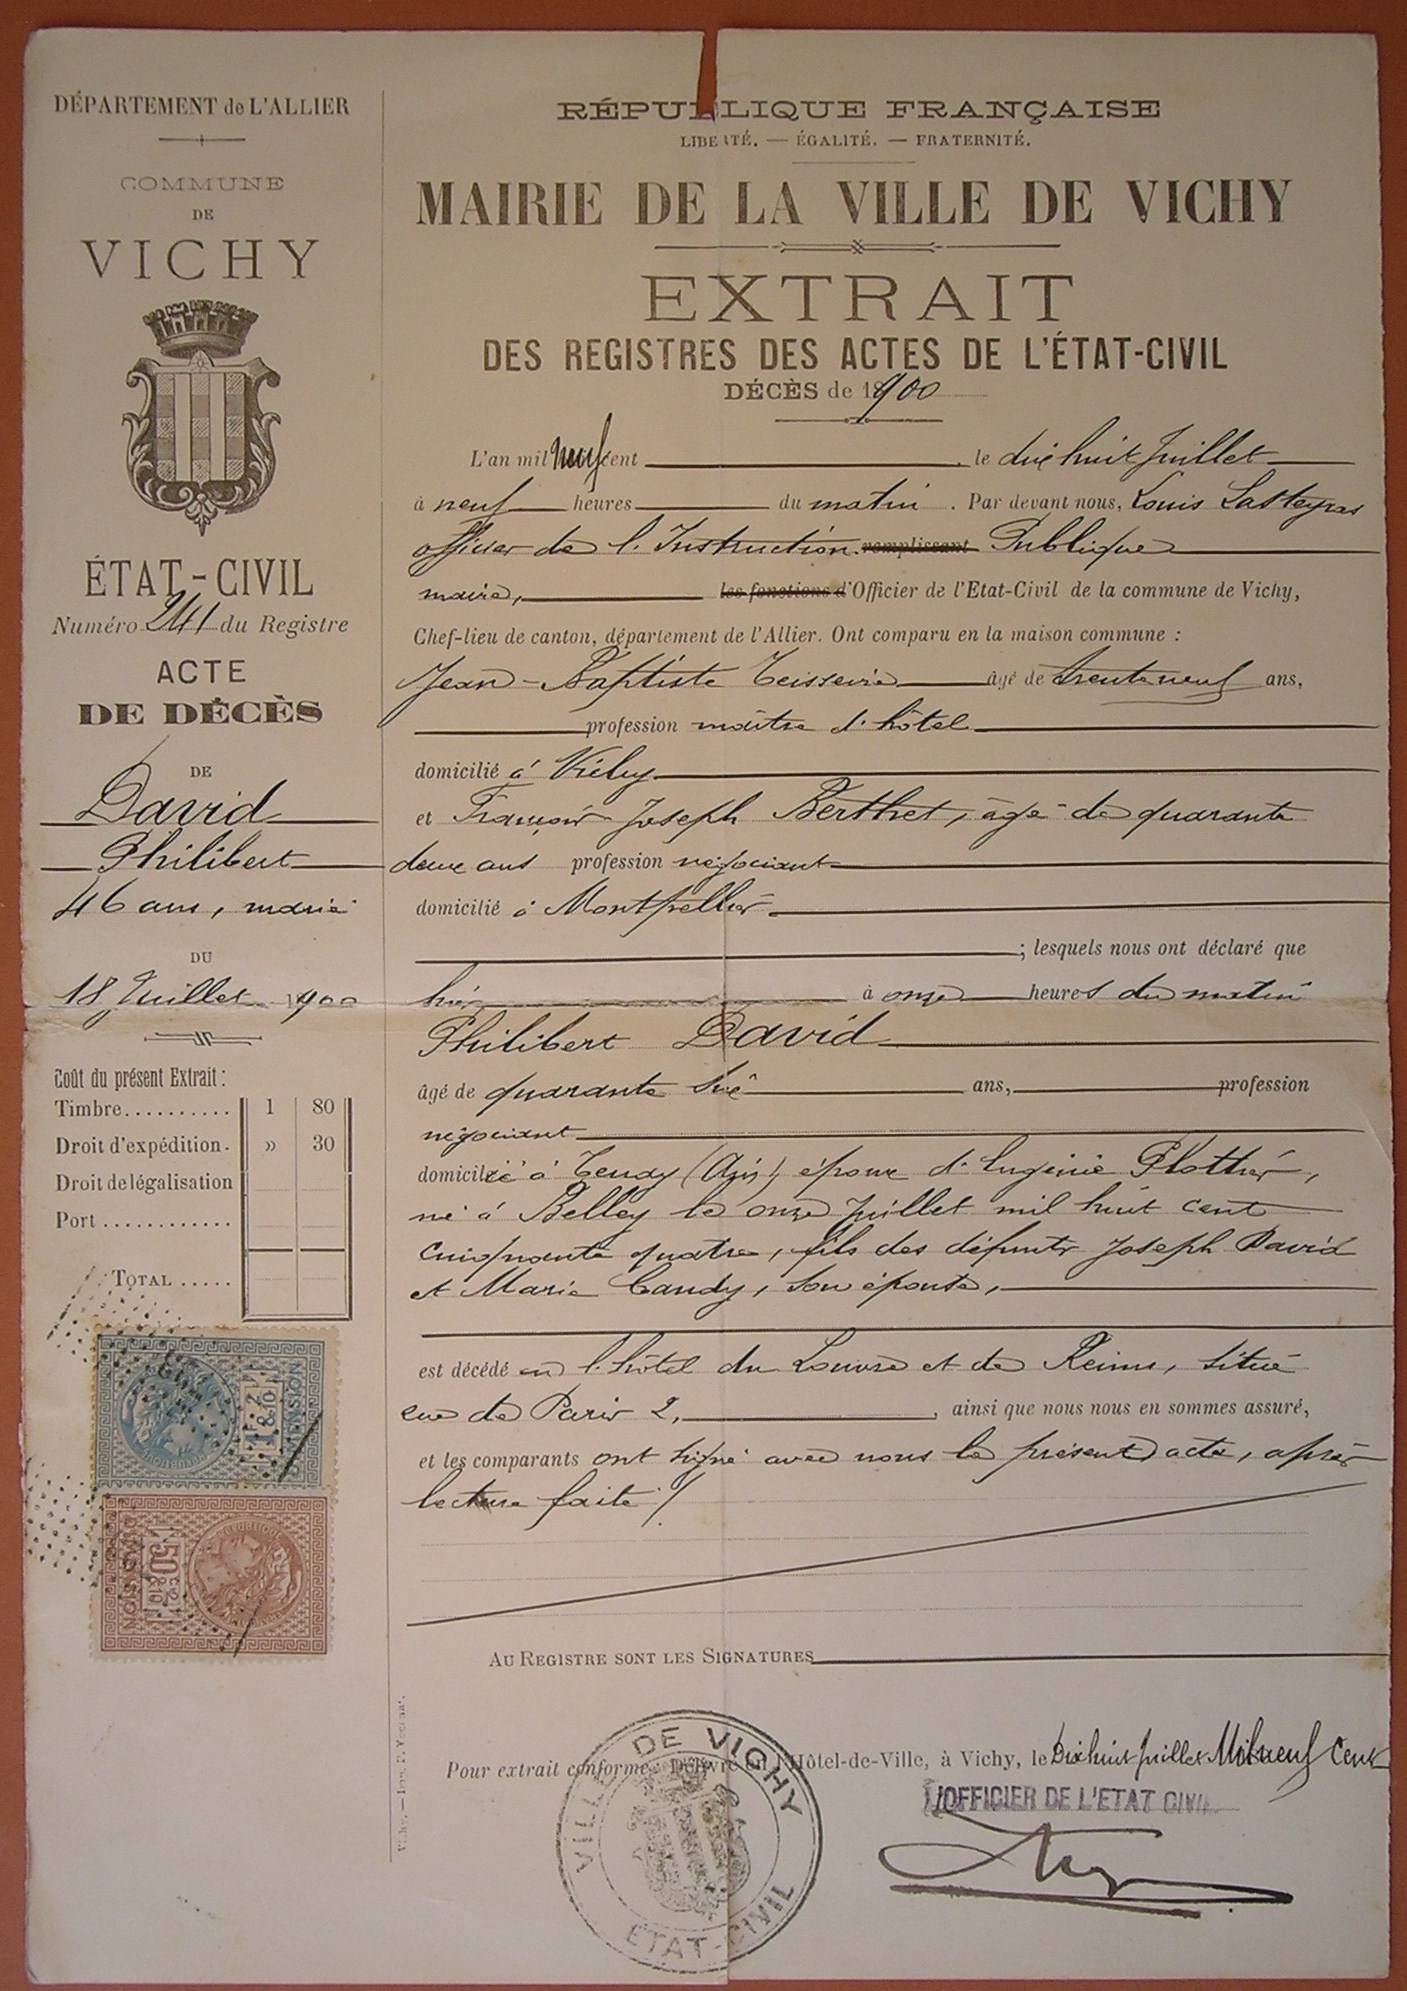 DÉPARTEMENT de L'ALLIER
COMMUNE
DE
VICHY
ÉTAT-CIVIL
Numéro 241 du Registre
ACTE
DE DÉCÈS
DE
David
Philibert
46 ans, marié
DU
18 Juillet 1900
Coût du présent Extrait :
Timbre.......... 1 80
Droit d'expédition. » 30
Droit de légalisation
Port ............
TOTAL .....
DIMENSION
DIMENSION
50c
RÉPUBLIQUE FRANÇAISE
LIBERTÉ. — ÉGALITÉ. — FRATERNITÉ.
MAIRIE DE LA VILLE DE VICHY
EXTRAIT
DES REGISTRES DES ACTES DE L'ÉTAT-CIVIL
DÉCÈS de 1900
L'an mil neuf cent, le dix huit Juillet
à neuf heures du matin. Par devant nous, Louis Lasteyras
officier de l'Instruction remplissant Publique
maire, les fonctions d'Officier de l'Etat-Civil de la commune de Vichy,
Chef-lieu de canton, département de l'Allier. Ont comparu en la maison commune :
Jean-Baptiste Teisseire âgé de trente neuf ans,
profession maître d'hôtel
domicilié à Vichy
et François Joseph Berthet, âgé de quarante
deux ans profession négociant
domicilié à Montpellier
; lesquels nous ont déclaré que
hier à onze heures du matin
Philibert David
âgé de quarante six ans, profession
négociant
domicilié à Tenay (Ain), époux d'Eugénie Plottier,
né à Belley le onze Juillet mil huit cent
cinquante quatre, fils des défunts Joseph David
et Marie Candy, son épouse,
est décédé en l'hôtel du Louvre et de Reims, situé
rue de Paris 2, ainsi que nous nous en sommes assuré,
et les comparants ont signé avec nous le présent acte, après
lecture faite ./.
AU REGISTRE SONT LES SIGNATURES
Pour extrait conforme. Délivré en l'Hôtel-de-Ville, à Vichy, le Dix huit Juillet Mil neuf Cent
L'OFFICIER DE L'ETAT CIVIL
VILLE DE VICHY
ÉTAT-CIVIL